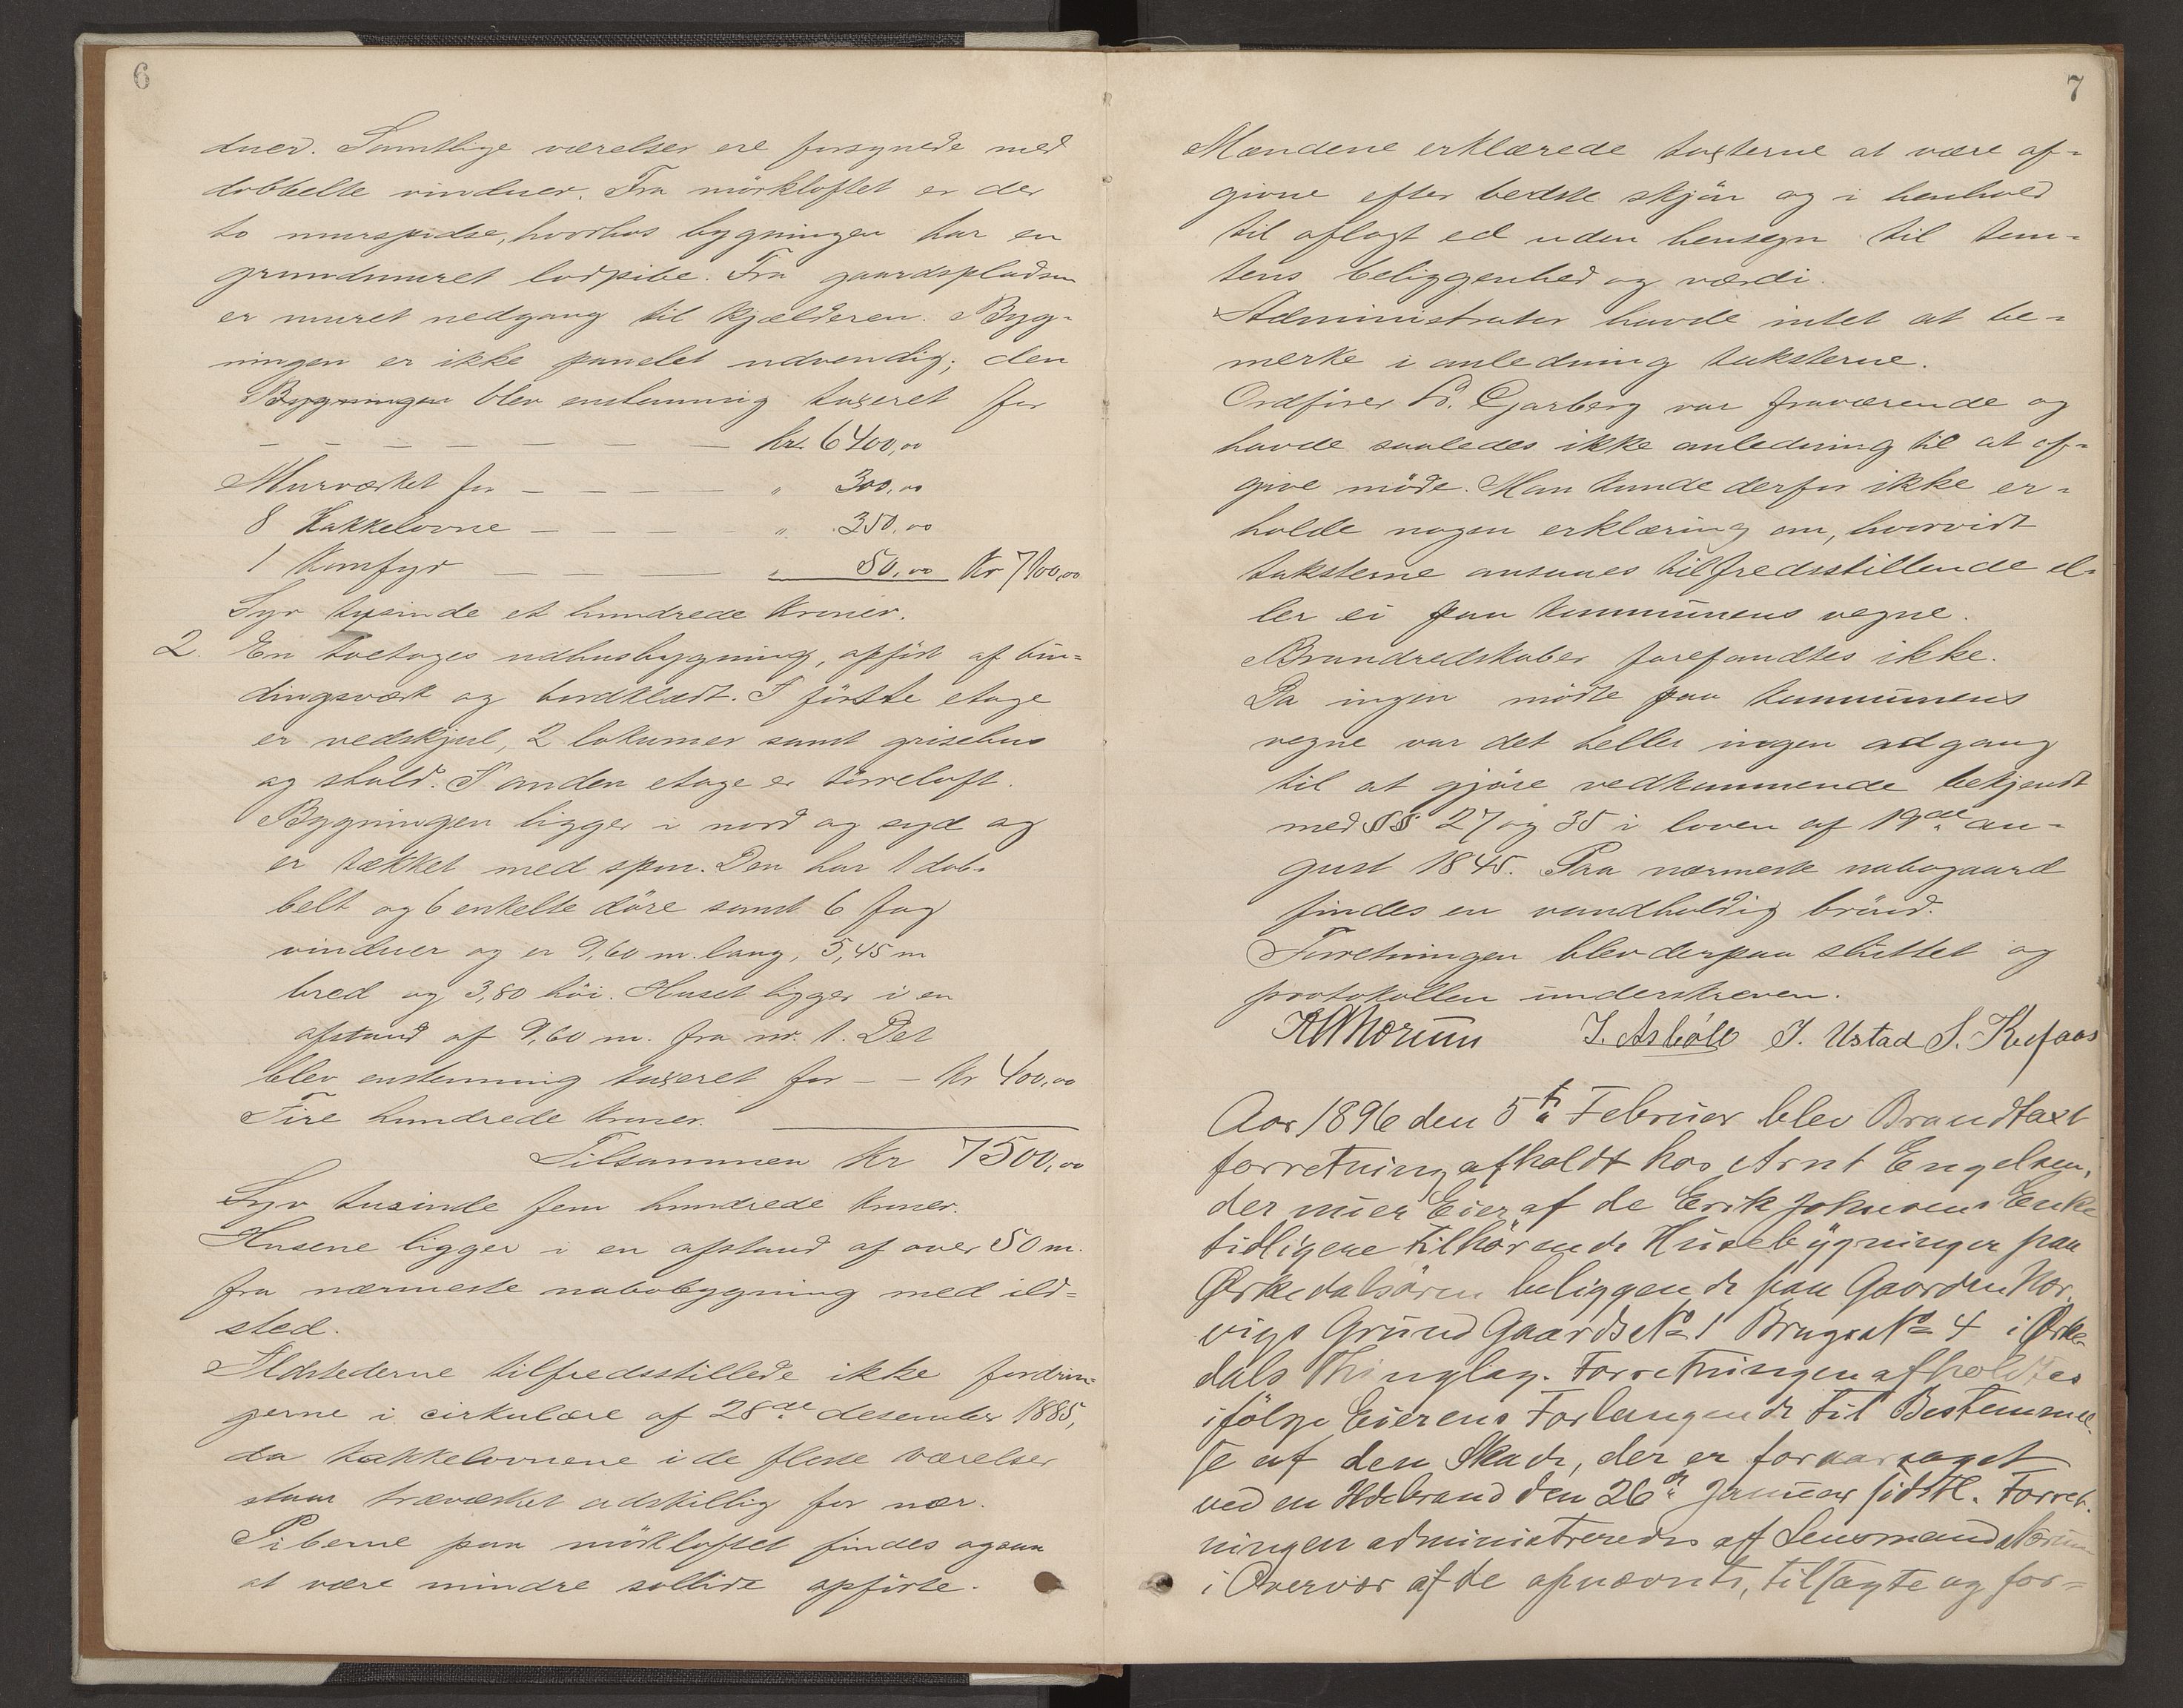 6
duer. Samtlige værelser ere forsynede med
dobbelte vinduer. Fra mörkloftet er der
to murspidse, hvorhos bygningen har en
grundmuret lodpibe. Fra gaardspladsen
er muret nedgang til kjælderen. Byg-
ningen er ikke panelet udvendig; den
Bygningen blev enstemmig taxeret for
— — — — — — — — kr. 6400,00
Murværket for — — — — " 300,00
8 Kakkelovne — — — — " 350,00
1 Komfyr — — — — " 50,00 Kr 7100,00
Syv tusinde et hundrede kroner.
2. En toetages udhusbygning, opfört af bin-
dingsværk og bordklædt. I förstte etage
er vedskjul, 2 lokumer samt grisehus
og stald. I anden etage er törreloft.
Bygningen ligger i nord og syd og
er tækket med spon. Den har 1 dob-
belt og 6 enkelte döre samt 6 fag
vinduer og er 9,60 m. lang, 5,45 m
bred og 3,80 höi. Huset ligger i en
afstand af 9,60 m. fra nr. 1. Det
blev enstemmig taxeret for — — Kr 400,00
Fire hundrede kroner.
Tilsammen Kr 7500,00
Syv tusinde fem hundrede kroner.
Husene ligger i en afstand af over 50 m.
fra nærmeste nabobygning med ild-
sted.
Ildstederne tilfredsstillede ikke fordrin-
gerne i cirkulære af 28de desember 1885,
da kakkelovnene i de fleste værelser
staar træværket adskillig for nær.
Piberne paa mörkloftet findes ogsaa
at være mindre sollide opförte.
7
Mændene erklærede taxterne at være af-
givne efter bedste skjön og i henhold
til aflagt ed uden hensyn til tom-
tens beliggenhed og værdi.
Administrator havde intet at be-
merke i anledning taksterne.
Ordförer Gjarberg var fraværende og
havde saaledes ikke anledning til at af-
give möde. Man kunde derfor ikke er-
holde nogen erklæring om, hvorvidt
taksterne ansaaes tilfredsstillende el-
ler ei paa kommunens vegne.
Brandredskaber forefandtes ikke.
Da ingen mödte paa kommunens
vegne var det heller ingen adgang
til at gjöre vedkommende bekjendt
med §§ 27 og 35 i loven af 19de au-
gust 1845. Paa nærmeste nabogaard
findes en vandholdig brönd.
Forretningen blev derpaa sluttet og
protokollen underskreven.
J. Asböll J. Ustad S. Kufaas
Aar 1896 den 5te Februar blev Brandtaxt
forretning afholdt hos Arnt Engelsen,
der nu er Eier af de Erik Johnsens Enke
tidligere tilhörende Husebygninger paa
Ørkedalsören beliggende paa Gaarden Nor-
vigs Grund Gaards No 1 Brugs No 4 i Ørke-
dals Thinglag. Forretningen afholdtes
ifölge Eierens Forlangende til Bestemmel-
se af den Skade, der er foraarsaget
ved en Ildebrand den 26de Januar sidstl. Forret-
ningen administreredes af Lensmand Norum
i Overvær af de opnævnte, tilsagte og for-